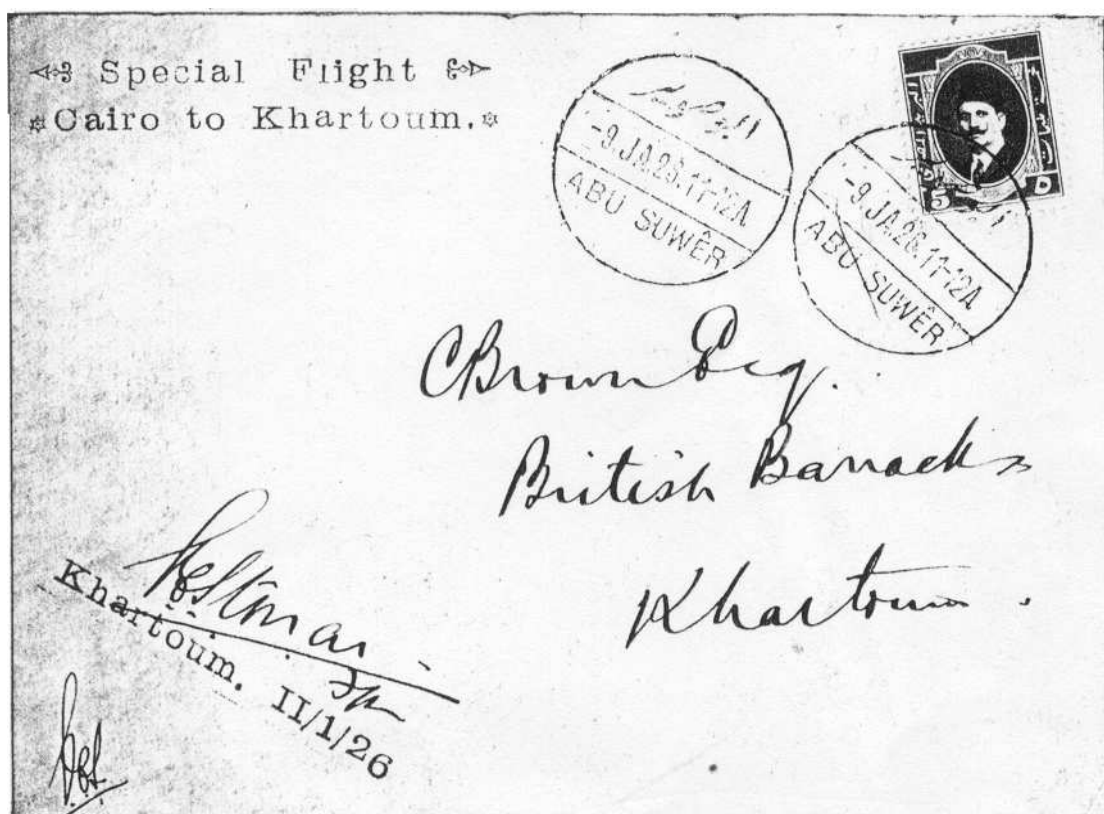 Special Flight
Cairo to Khartoum.
-9.JA.26.11-12A
ABU SUWÊR
-9.JA.26.11-12A
ABU SUWÊR
5
C Brown Esq.
British Barracks
Khartoum.
Khartoum. II/1/26